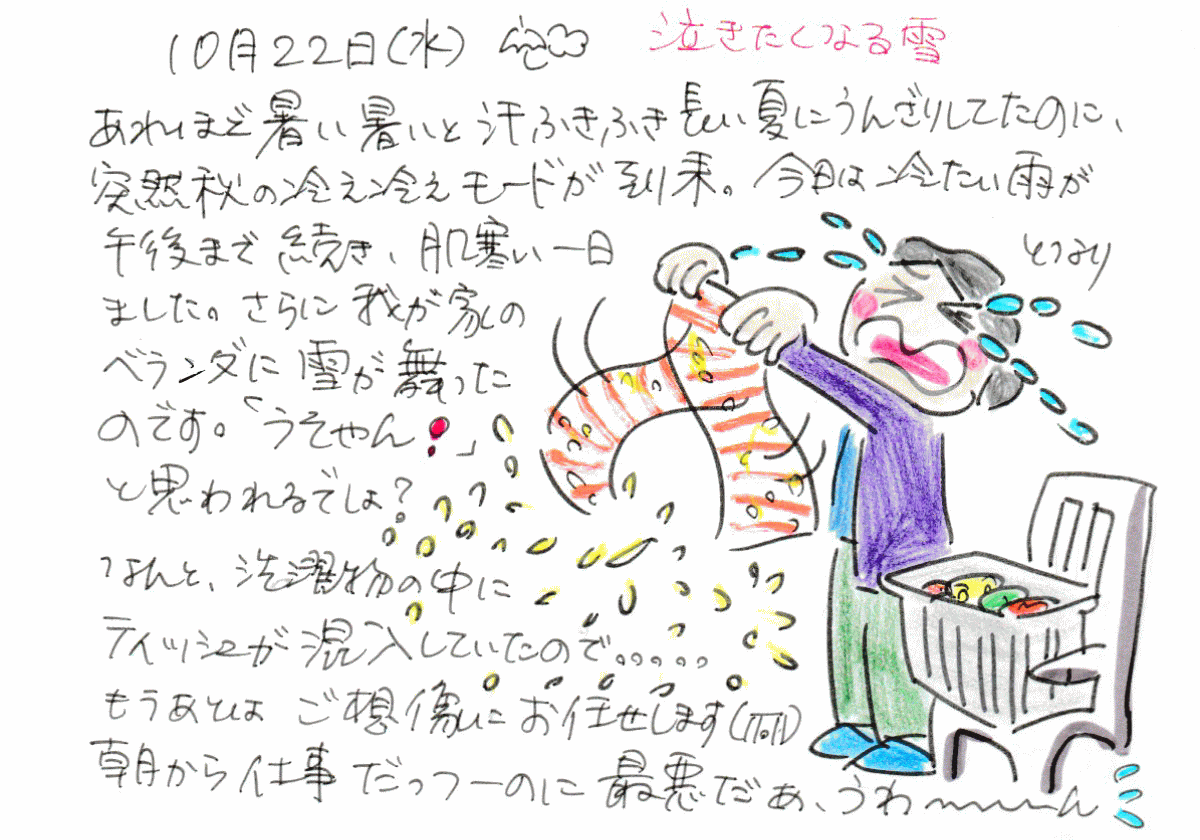 10月22日(水)
泣きたくなる雪
あれまで暑い暑いと汗ふきふき長い夏にうんざりしてたのに、
突然秋の冷え冷えモードが到来。今日は冷たい雨が
午後まで続き、肌寒い一日
となり
ました。さらに我が家の
ベランダに雪が舞った
のです。「うそやん!」
と思われるでしょ?
なんと、洗濯物の中に
ティッシュが混入していたので。。。。。
もうあとはご想像にお任せします(TT。TT)
朝から仕事だっつーのに最悪だぁ、うわ〜〜〜ん